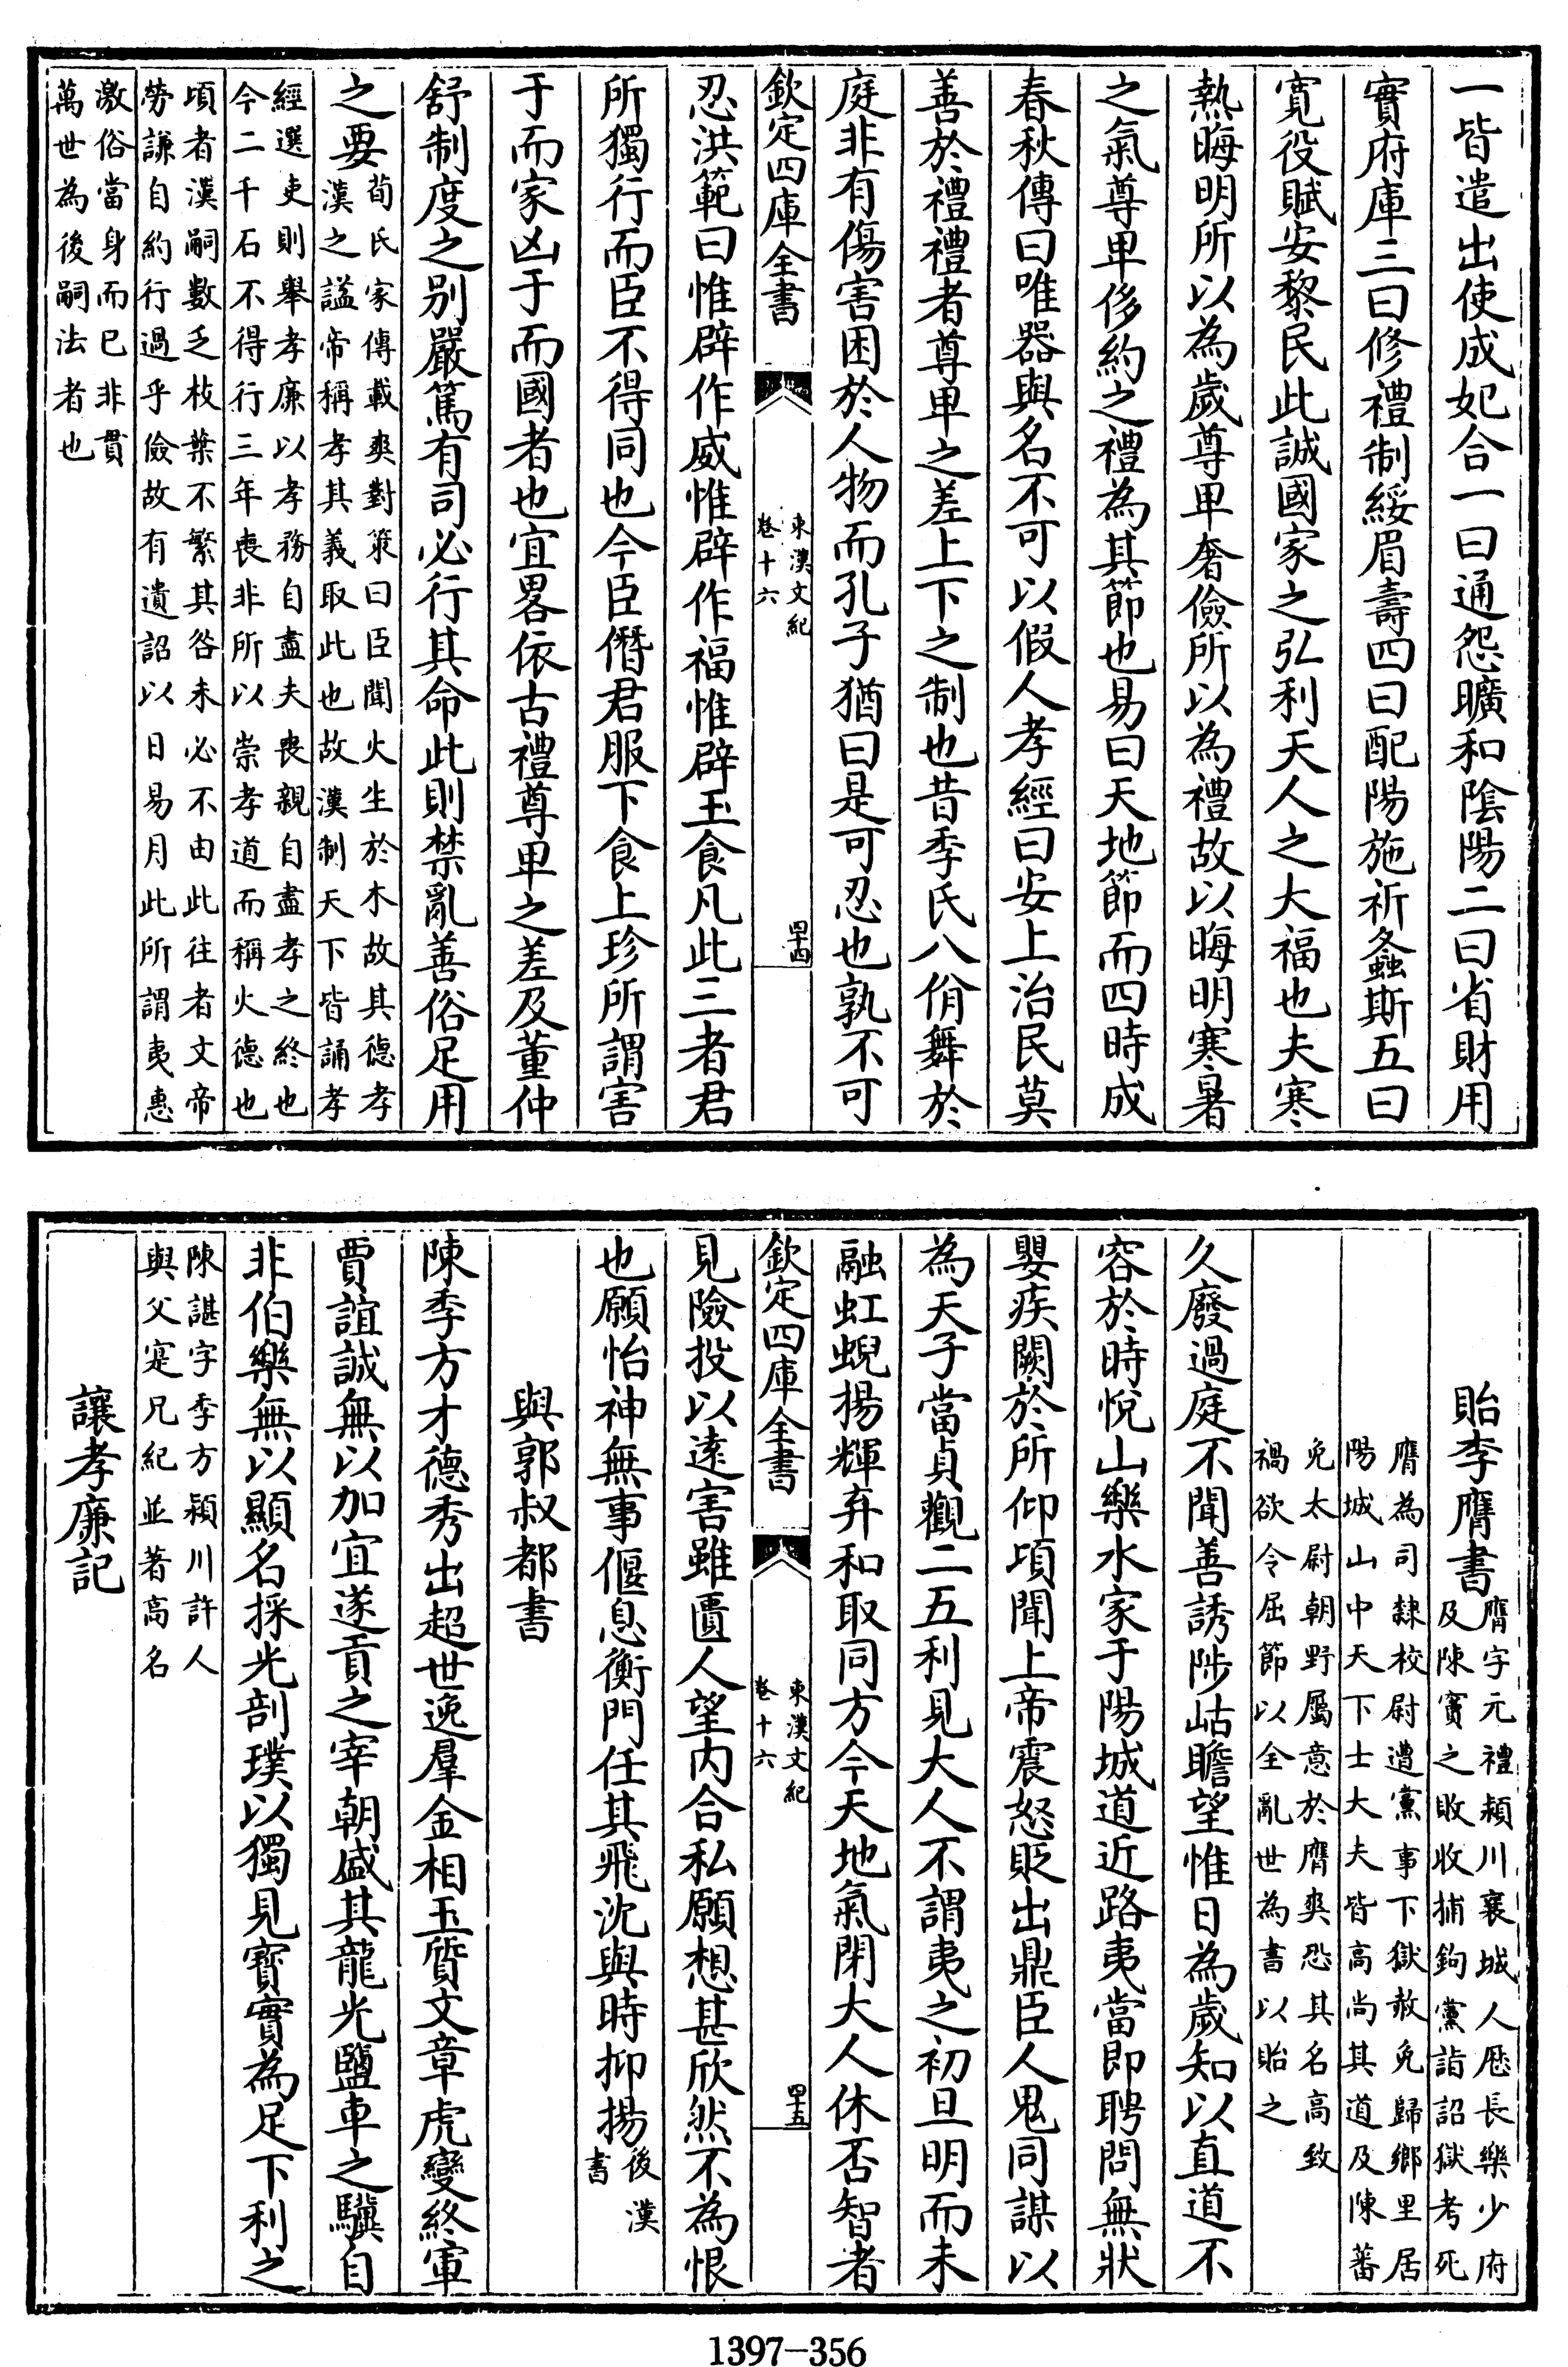 一皆遣出使成妃合一曰通怨曠和陰陽二曰省財用
實府庫三曰修禮制綏眉壽四曰配陽施祈螽斯五曰
寛役賦安黎民此誠國家之弘利天人之大福也夫寒
熱晦明所以為歲尊卑奢儉所以為禮故以晦明寒暑
之氣尊卑侈約之禮為其節也易曰天地節而四時成
春秋傳曰唯器與名不可以假人孝經曰安上治民莫
善於禮禮者尊卑之差上下之制也昔季氏八佾舞於
庭非有傷害困於人物而孔子猶曰是可忍也孰不可
欽定四庫全書
東漢文紀
卷十六
四十四
忍洪範曰惟辟作威惟辟作福惟辟玉食凡此三者君
所獨行而臣不得同也今臣僭君服下食上珍所謂害
于而家凶于而國者也宜畧依古禮尊卑之差及董仲
舒制度之别嚴篤有司必行其命此則禁亂善俗足用
之要
荀氏家傳載爽對策曰臣聞火生於木故其徳孝
漢之諡帝稱孝其義取此也故漢制天下皆誦孝
經選吏則舉孝廉以孝務自盡夫喪親自盡孝之終也
今二千石不得行三年喪非所以崇孝道而稱火德也
頃者漢嗣數乏枝葉不繁其咎未必不由此往者文帝
勞謙自約行過乎儉故有遺詔以日易月此所謂夷惠
激俗當身而已非貫
萬世為後嗣法者也
貽李膺書
膺字元禮潁川襄城人歴長樂少府
及陳竇之敗收捕鉤黨詣詔獄考死
膺為司隸校尉遭黨事下獄赦免歸鄉里居
陽城山中天下士大夫皆高尚其道及陳蕃
免太尉朝野屬意於膺爽恐其名高致
禍欲令屈節以全亂世為書以貽之
久廢過庭不聞善誘陟岵瞻望惟日為歲知以直道不
容於時悅山樂水家于陽城道近路夷當即聘問無狀
嬰疾闕於所仰頃聞上帝震怒貶出鼎臣人鬼同謀以
為天子當貞觀二五利見大人不謂夷之初旦明而未
融虹蜺揚輝弃和取同方今天地氣閉大人休否智者
欽定四庫全書
東漢文紀
卷十六
四十五
見險投以逺害雖匱人望内合私願想甚欣然不為恨
也願怡神無事偃息衡門任其飛沈與時抑揚
後漢
書
與郭叔都書
陳季方才德秀出超世逸羣金相玉質文章虎變終軍
賈誼誠無以加宜遂貢之宰朝盛其龍光鹽車之驥自
非伯樂無以顯名採光剖璞以獨見寳實為足下利之
陳諶字季方潁川許人
與父寔兄紀並著高名
讓孝廉記
1397-356